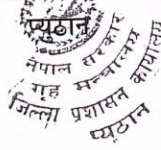 प्यूठान
नेपाल सरकार
गृह मन्त्रालय
जिल्ला प्रशासन कार्यालय
प्यूठान